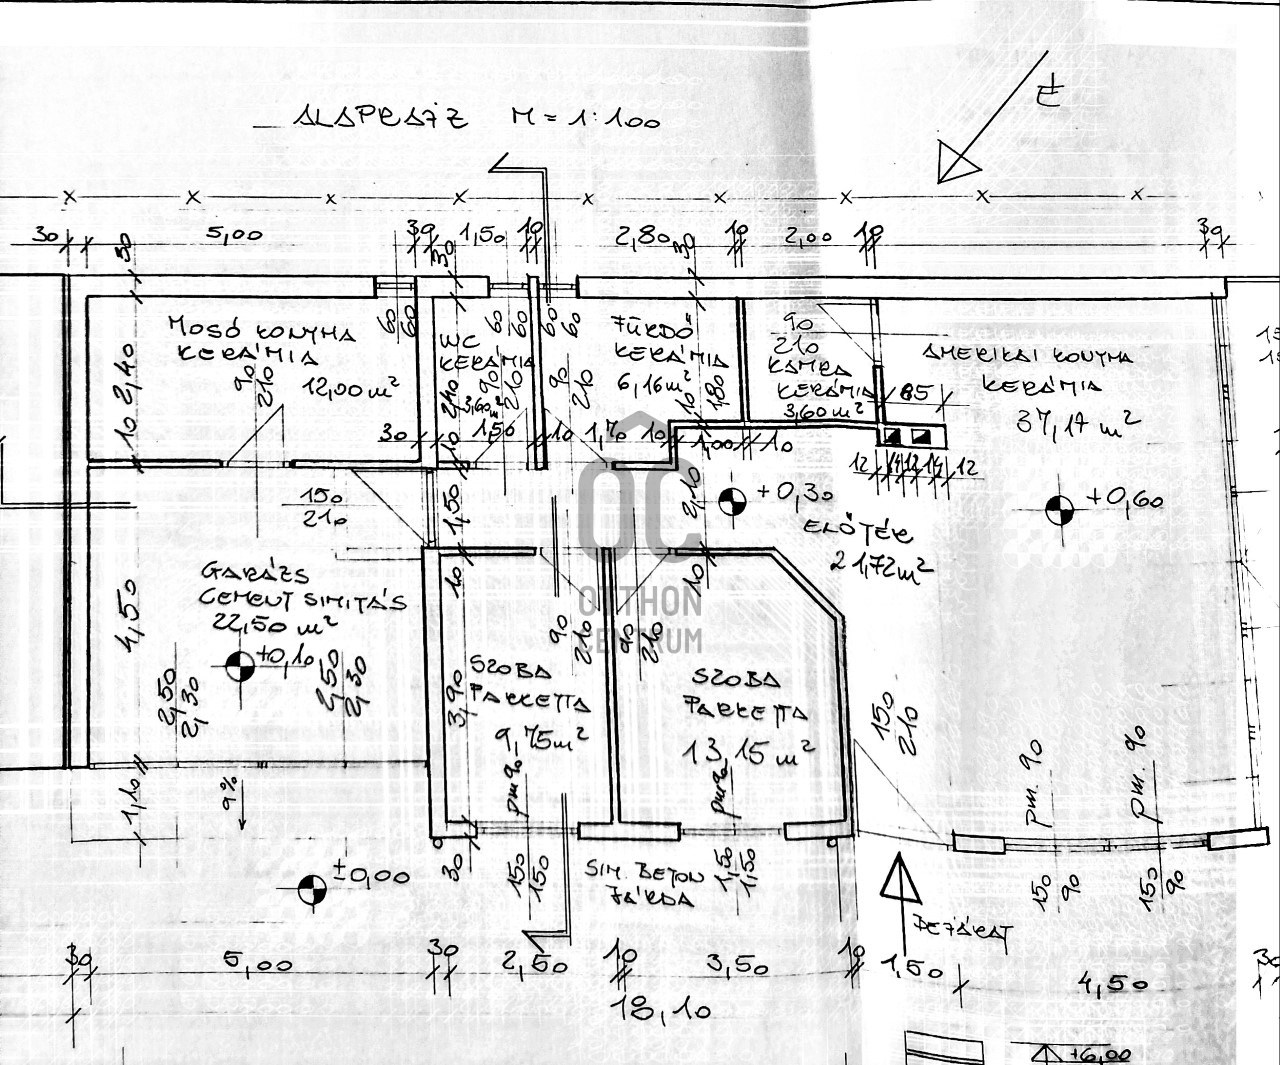 ALAPRAJZ M = 1:100
É
30 5,00 30 1,50 10 2,80 10 2,00 10 30
30
30
30
MOSÓ KONYHA
KERÁMIA
12,00 m²
90
210
2,40
10
60
60
WC
KERÁMIA
3,60 m²
90
210
2,40
10
60
60
60
60
90
210
FÜRDŐ
KERÁMIA
6,16 m²
1,80
10
90
210
KAMRA
KERÁMIA
3,60 m²
65
AMERIKAI KONYHA
KERÁMIA
37,17 m²
30 1,50 10 1,70 10 1,00 10
12 14 12 14 12
+0,30
+0,60
ELŐTÉR
21,72 m²
150
210
1,50
2,10
10
10
GARÁZS
CEMENT SIMITÁS
22,50 m²
+0,10
4,50
2,50
2,30
2,50
2,30
1,10
9%
OC
OTTHON
CENTRUM
90
210
90
210
SZOBA
PARKETTA
9,75 m²
3,90
pm 90
SZOBA
PARKETTA
13,15 m²
pm 90
150
210
pm. 90
pm. 90
±0,00
30
150
150
SIM. BETON
JÁRDA
1,50
1,50
150
90
150
90
BEJÁRAT
30 5,00 30 2,50 10 3,50 10 1,50 4,50 30
18,10
+6,00